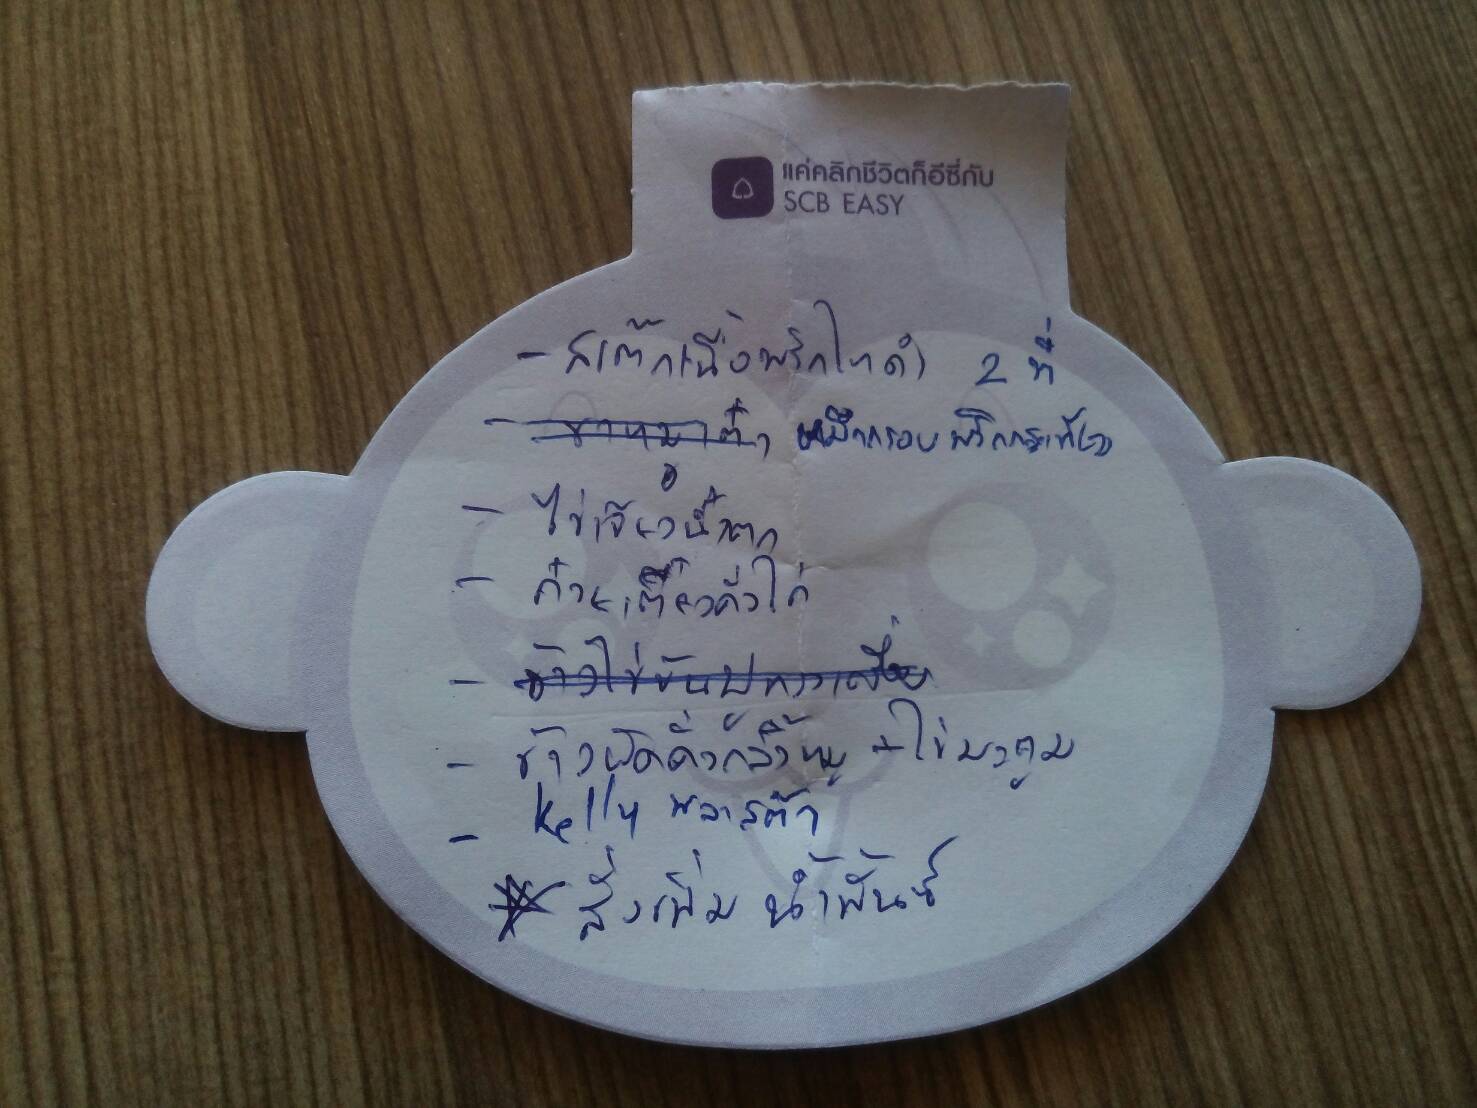 แค่คลิกชีวิตก็อีซี่กับ
SCB EASY
- สเต๊กเนื้อพริกไทดำ 2 ที่
- ขาหมูต๋า หมึกกรอบพริกกระเทียม
- ไข่เจียวน้ำตก
- ก๋วยเตี๋ยวคั่วไก่
- ข้าวไข่ข้น
- ข้าวผัดคั่วกลิ้งหมู + ไข่มะตูม
- Kelly พลาสต้า
* สั่งเพิ่ม น้ำพั้นซ์